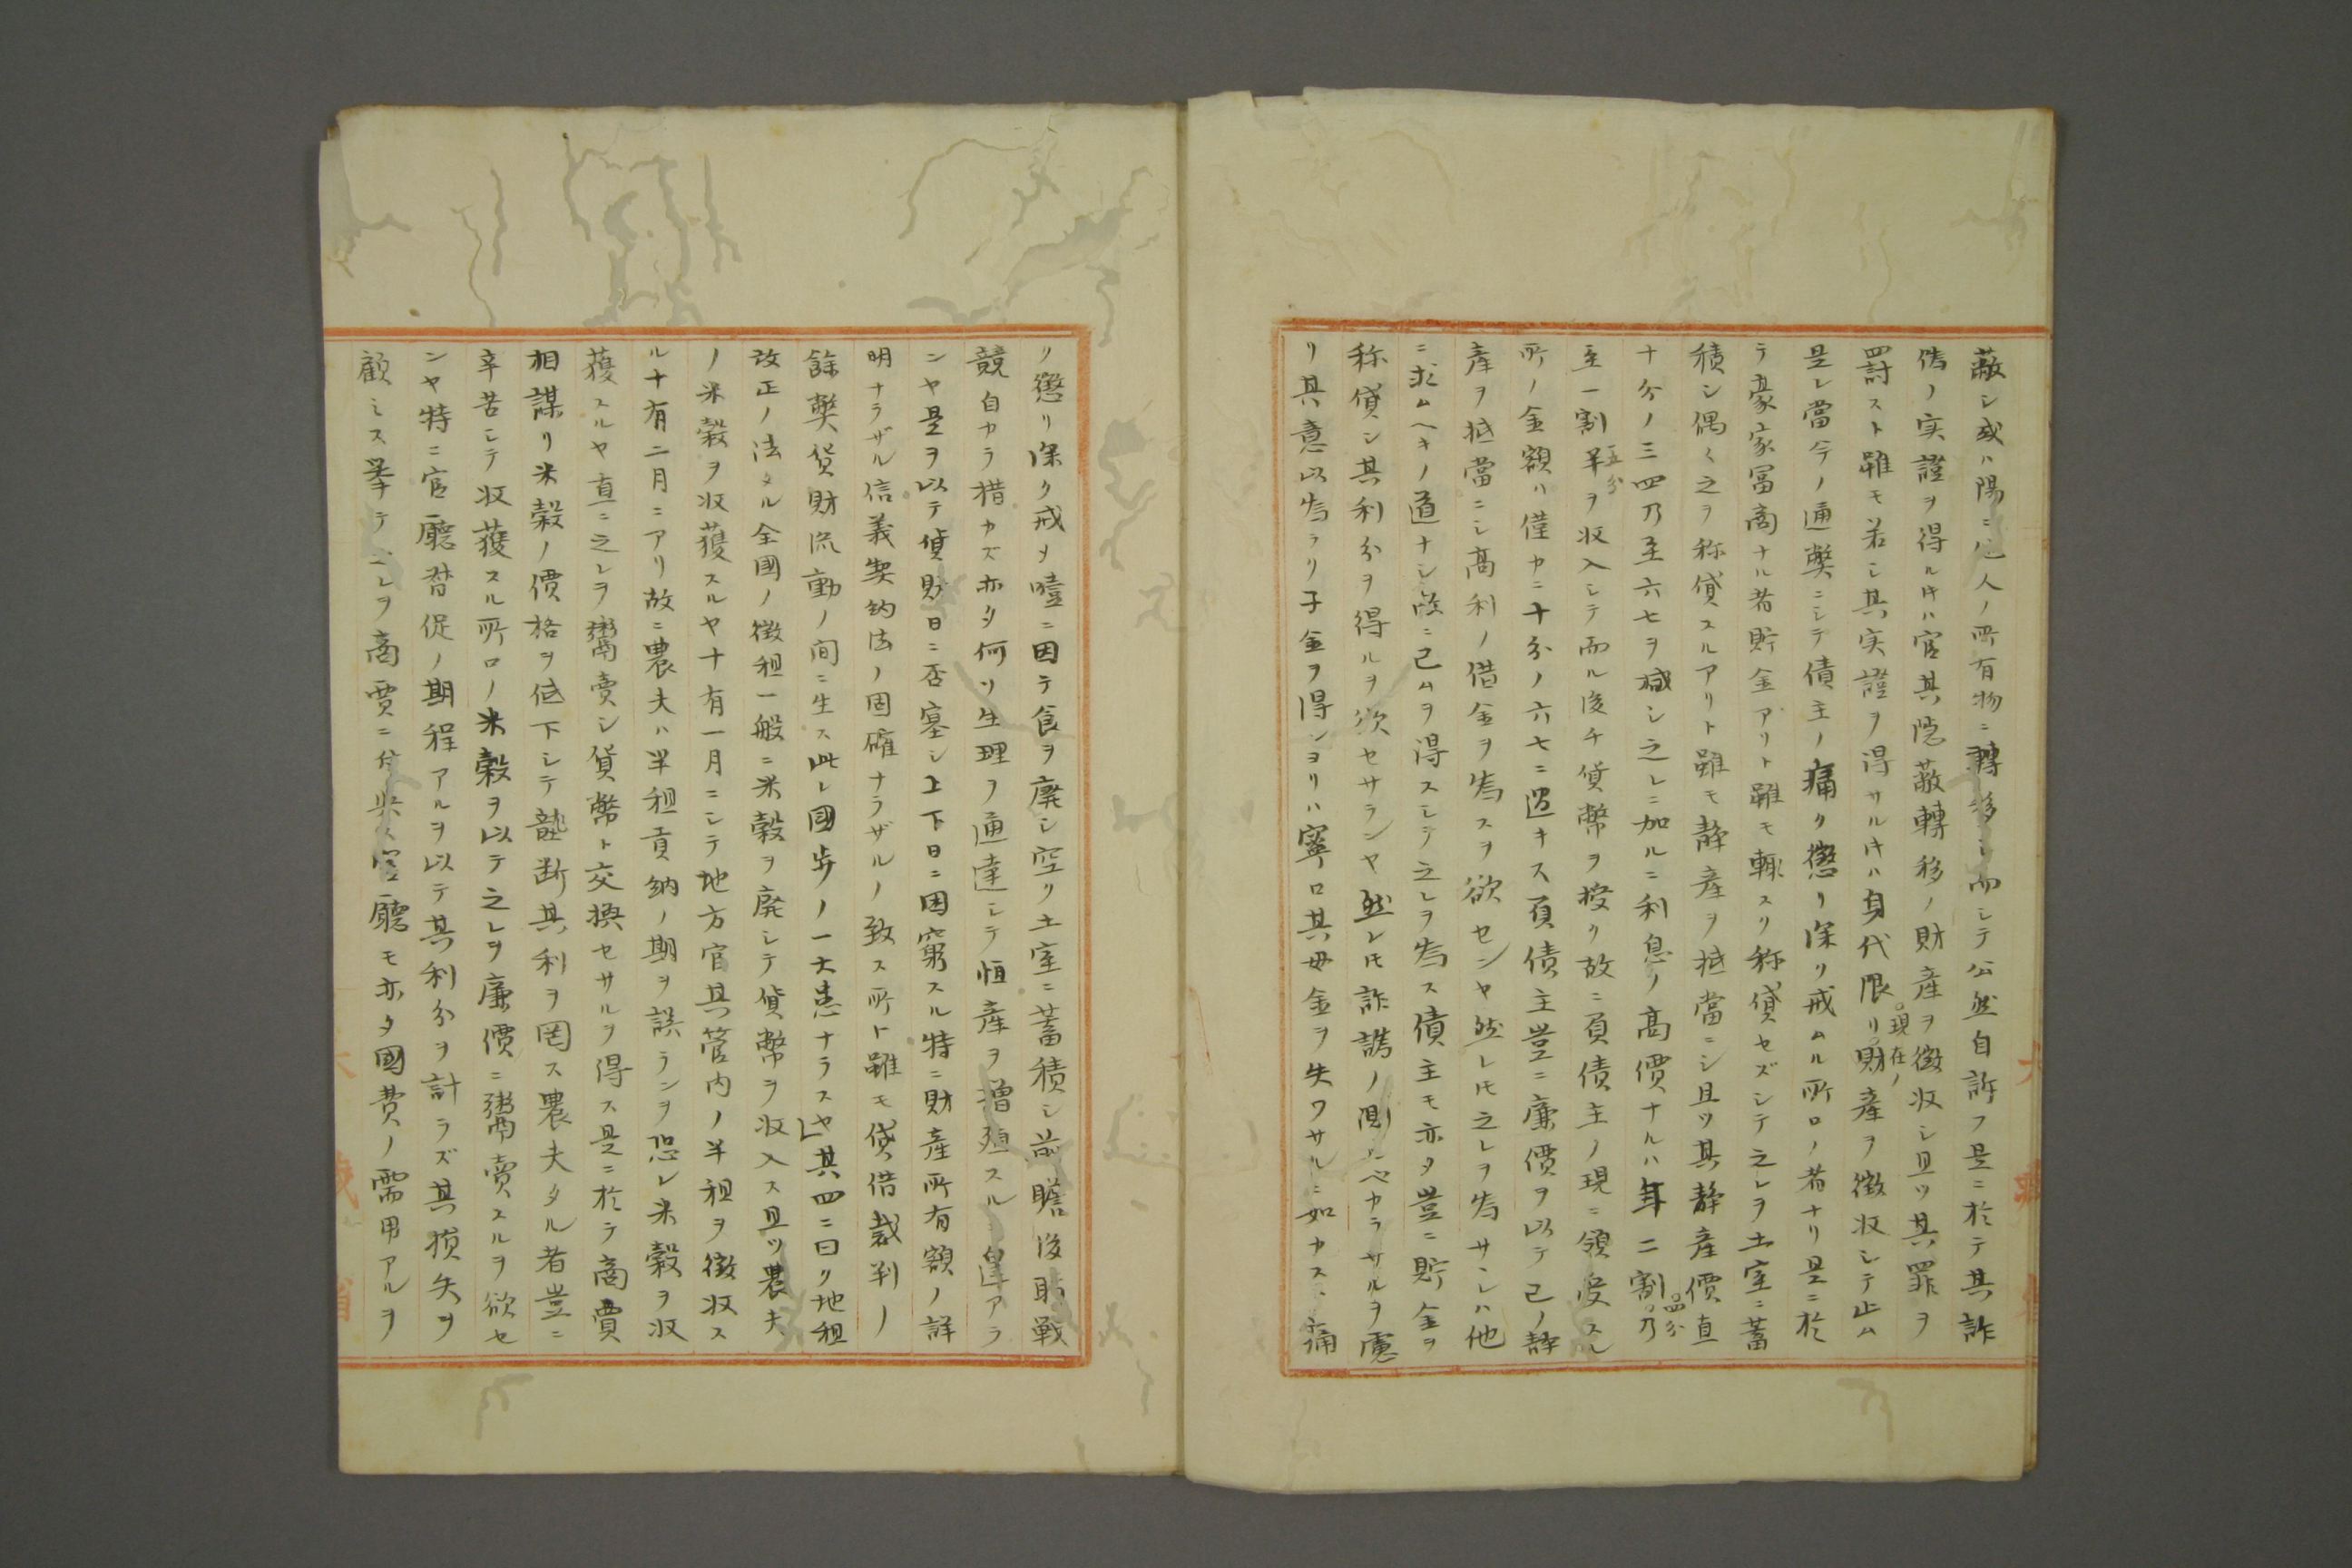 蔽シ或ハ陽ニ他人ノ所有物ニ轉移シ而シテ公然自訴フ是ニ於テ其詐
偽ノ実證ヲ得ル片ハ官其隠蔽轉移ノ財産ヲ徴収シ且ツ其罪ヲ
罰スト雖モ若シ其実證ヲ得サル片ハ身代限リ現在ノ財産ヲ徴収シテ止ム
是レ當今ノ通弊ニシテ債主ノ痛ク懲リ深リ戒ムル所ロノ者ナリ是ニ於
テ豪家冨商ナル者貯金アリト雖モ輙スリ称貸セズシテ之レヲ土室ニ蓄
積シ偶々之ヲ称貸スルアリト雖モ静産ヲ抵當ニシ且ツ其静産價直
十分ノ三四乃至六七ヲ減シ之レニ加ルニ利息ノ高價ナルハ年二割四分乃
至一割半五分ヲ収入シテ而ル後チ貨幣ヲ授ク故ニ負債主ノ現ニ領受スル
所ノ金額ハ僅カニ十分ノ六七ニ過キス負債主豈ニ廉價ヲ以テ己ノ静
産ヲ抵當ニシ高利ノ借金ヲ為スヲ欲センヤ然レ𪜈之レヲ為サシハ他
ニ求ムヘキノ道ナシ故ニ已ムヲ得スシテ之レヲ為ス債主モ亦タ豈ニ貯金ヲ
称貸シ其利分ヲ得ルヲ欲セサランヤ然レ𪜈詐譌ノ測ルベカラサルヲ慮
リ其意以為ラリ子金ヲ得ンヨリハ寧ロ其母金ヲ失ワサルニ如カスト痛
ノ懲リ深ク戒メ噎ニ因テ食ヲ廃シ空リ土室ニ蓄積シ前瞻後眄戦
競自カラ措カズ亦タ何ソ生理ヲ通達シテ恒産ヲ増殖スルニ遑アラ
ンヤ是ヲ以テ貨財日ニ否塞シ上下日ニ困窮スル特ニ財産所有額ノ詳
明ナラザル信義契約法ノ固確ナラザルノ致ス所ト雖モ貸借裁判ノ
餘弊貨財流動ノ間ニ生ス此レ國歩ノ一大患ナラスヤ其四ニ曰ク地租
改正ノ法タル全國ノ徴租一般ニ米穀ヲ廃シテ貨幣ヲ収入ス且ツ農夫
ノ米穀ヲ収獲スルヤ十有一月ニシテ地方官其管内ノ半租ヲ徴収ス
ル十有二月ニアリ故ニ農夫ハ半租貢納ノ期ヲ誤ランヲ恐レ米穀ヲ収
獲スルヤ直ニ之レヲ鬻賣シ貨幣ト交換セサルヲ得ス是ニ於テ商賈
相謀リ米穀ノ價格ヲ低下シテ壟断其利ヲ罔ス農夫タル者豈ニ
辛苦シテ収獲スル所ロノ米穀ヲ以テ之レヲ廉價ニ鬻賣スルヲ欲セ
ンヤ特ニ官廳督促ノ期程アルヲ以テ其利分ヲ計ラズ其損失ヲ
顧ミス挙テ之レヲ商賈ニ付與ス官廳モ亦タ國費ノ需用アルヲ